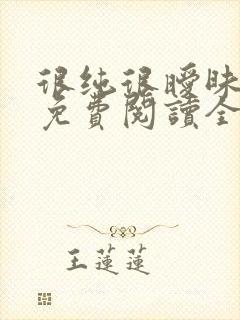 很纯很曖昧
免費閱讀全
王蓮蓮